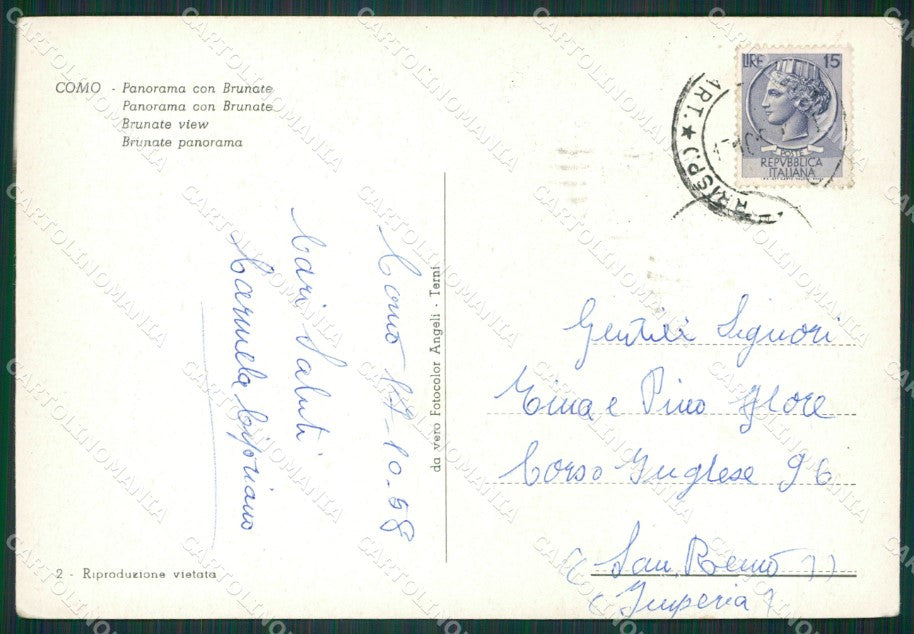 COMO - Panorama con Brunate
Panorama con Brunate
Brunate view
Brunate panorama
LIRE 15
POSTE
REPVBBLICA
ITALIANA
ART. ★ CORRISP
Como 17-10-58
Cari Saluti
Carmela Cipriano
da vero Fotocolor Angeli - Terni
Gentili Signori
Tina e Pino Flore
Corso Inglese 96
(San Remo)
(Imperia)
2 - Riproduzione vietata
CARTOLINOMANIA